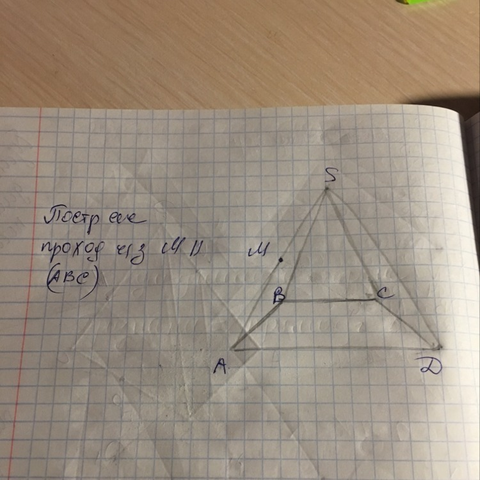 Постр сеч
проход чз M ||
(ABC)
S
M
B
C
A
D